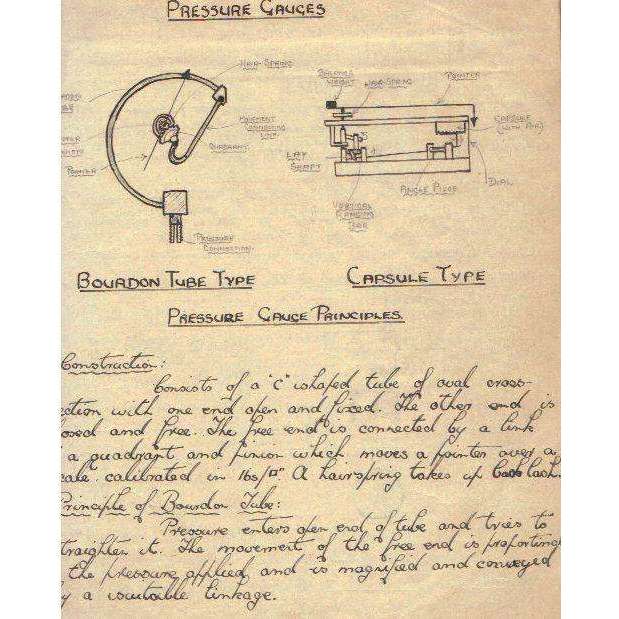 PRESSURE GAUGES
HAIR-SPRING
BALANCE
WEIGHT
HAIR-SPRING
POINTER
MOVEMENT
CONNECTING
LINK
QUADRANT
POINTER
PRESSURE
CONNECTION
CAPSULE
(WITH AIR)
LAY
SHAFT
DIAL
ANGLE PIECE
VERTICAL
BAR
BOURDON TUBE TYPE
CAPSULE TYPE
PRESSURE GAUGE PRINCIPLES.
Construction:
Consists of a "C" shaped tube of oval cross-
ection with one end open and fixed. The other end is
losed and free. The free end is connected by a link
a quadrant and pinion which moves a pointer over a
cale calibrated in lbs/□" A hairspring takes up back lash.
Principle of Bourdon Tube:
Pressure enters open end of tube and tries to
traighten it. The movement of the free end is proportion
the pressure applied, and is magnified and conveyed
y a suitable linkage.